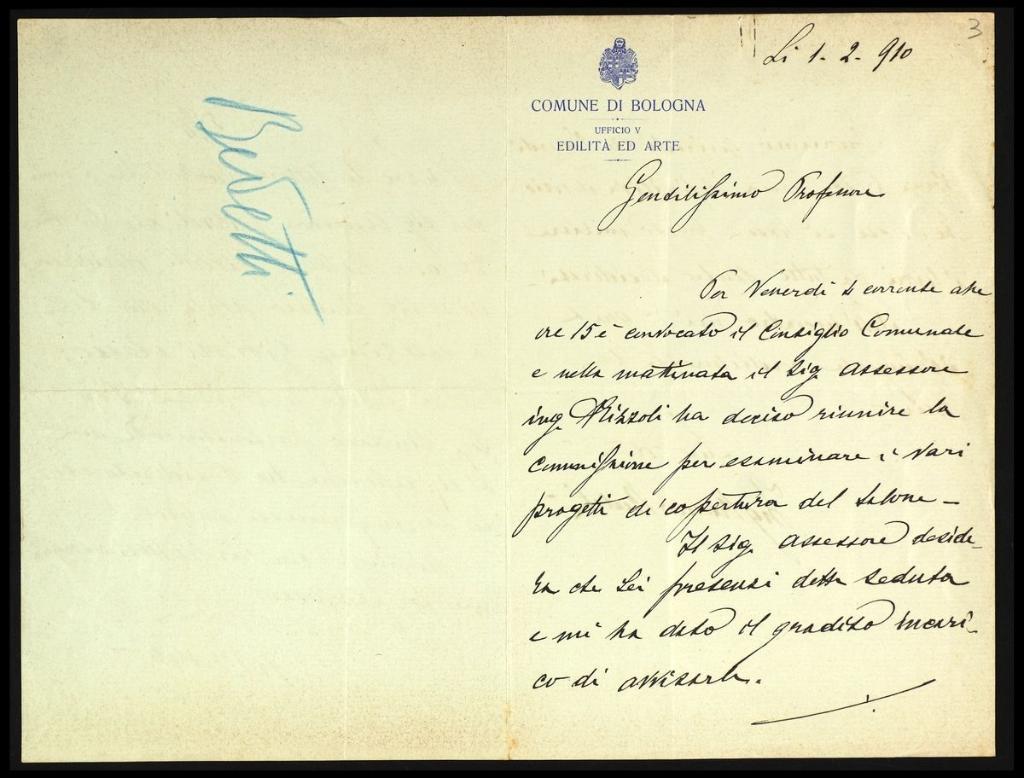 3
Li 1. 2. 910
COMUNE DI BOLOGNA
UFFICIO V
EDILITÀ ED ARTE
Gentilissimo Professore
Per Venerdì 4 corrente alle
ore 15 è convocato il Consiglio Comunale
e nella mattinata il sig. assessore
ing. Rizzoli ha deciso riunire la
commissione per esaminare i vari
progetti di copertura del salone –
Il sig. assessore deside-
ra che Lei presenzi detta seduta
e mi ha dato il gradito incari-
co di avvisarla.